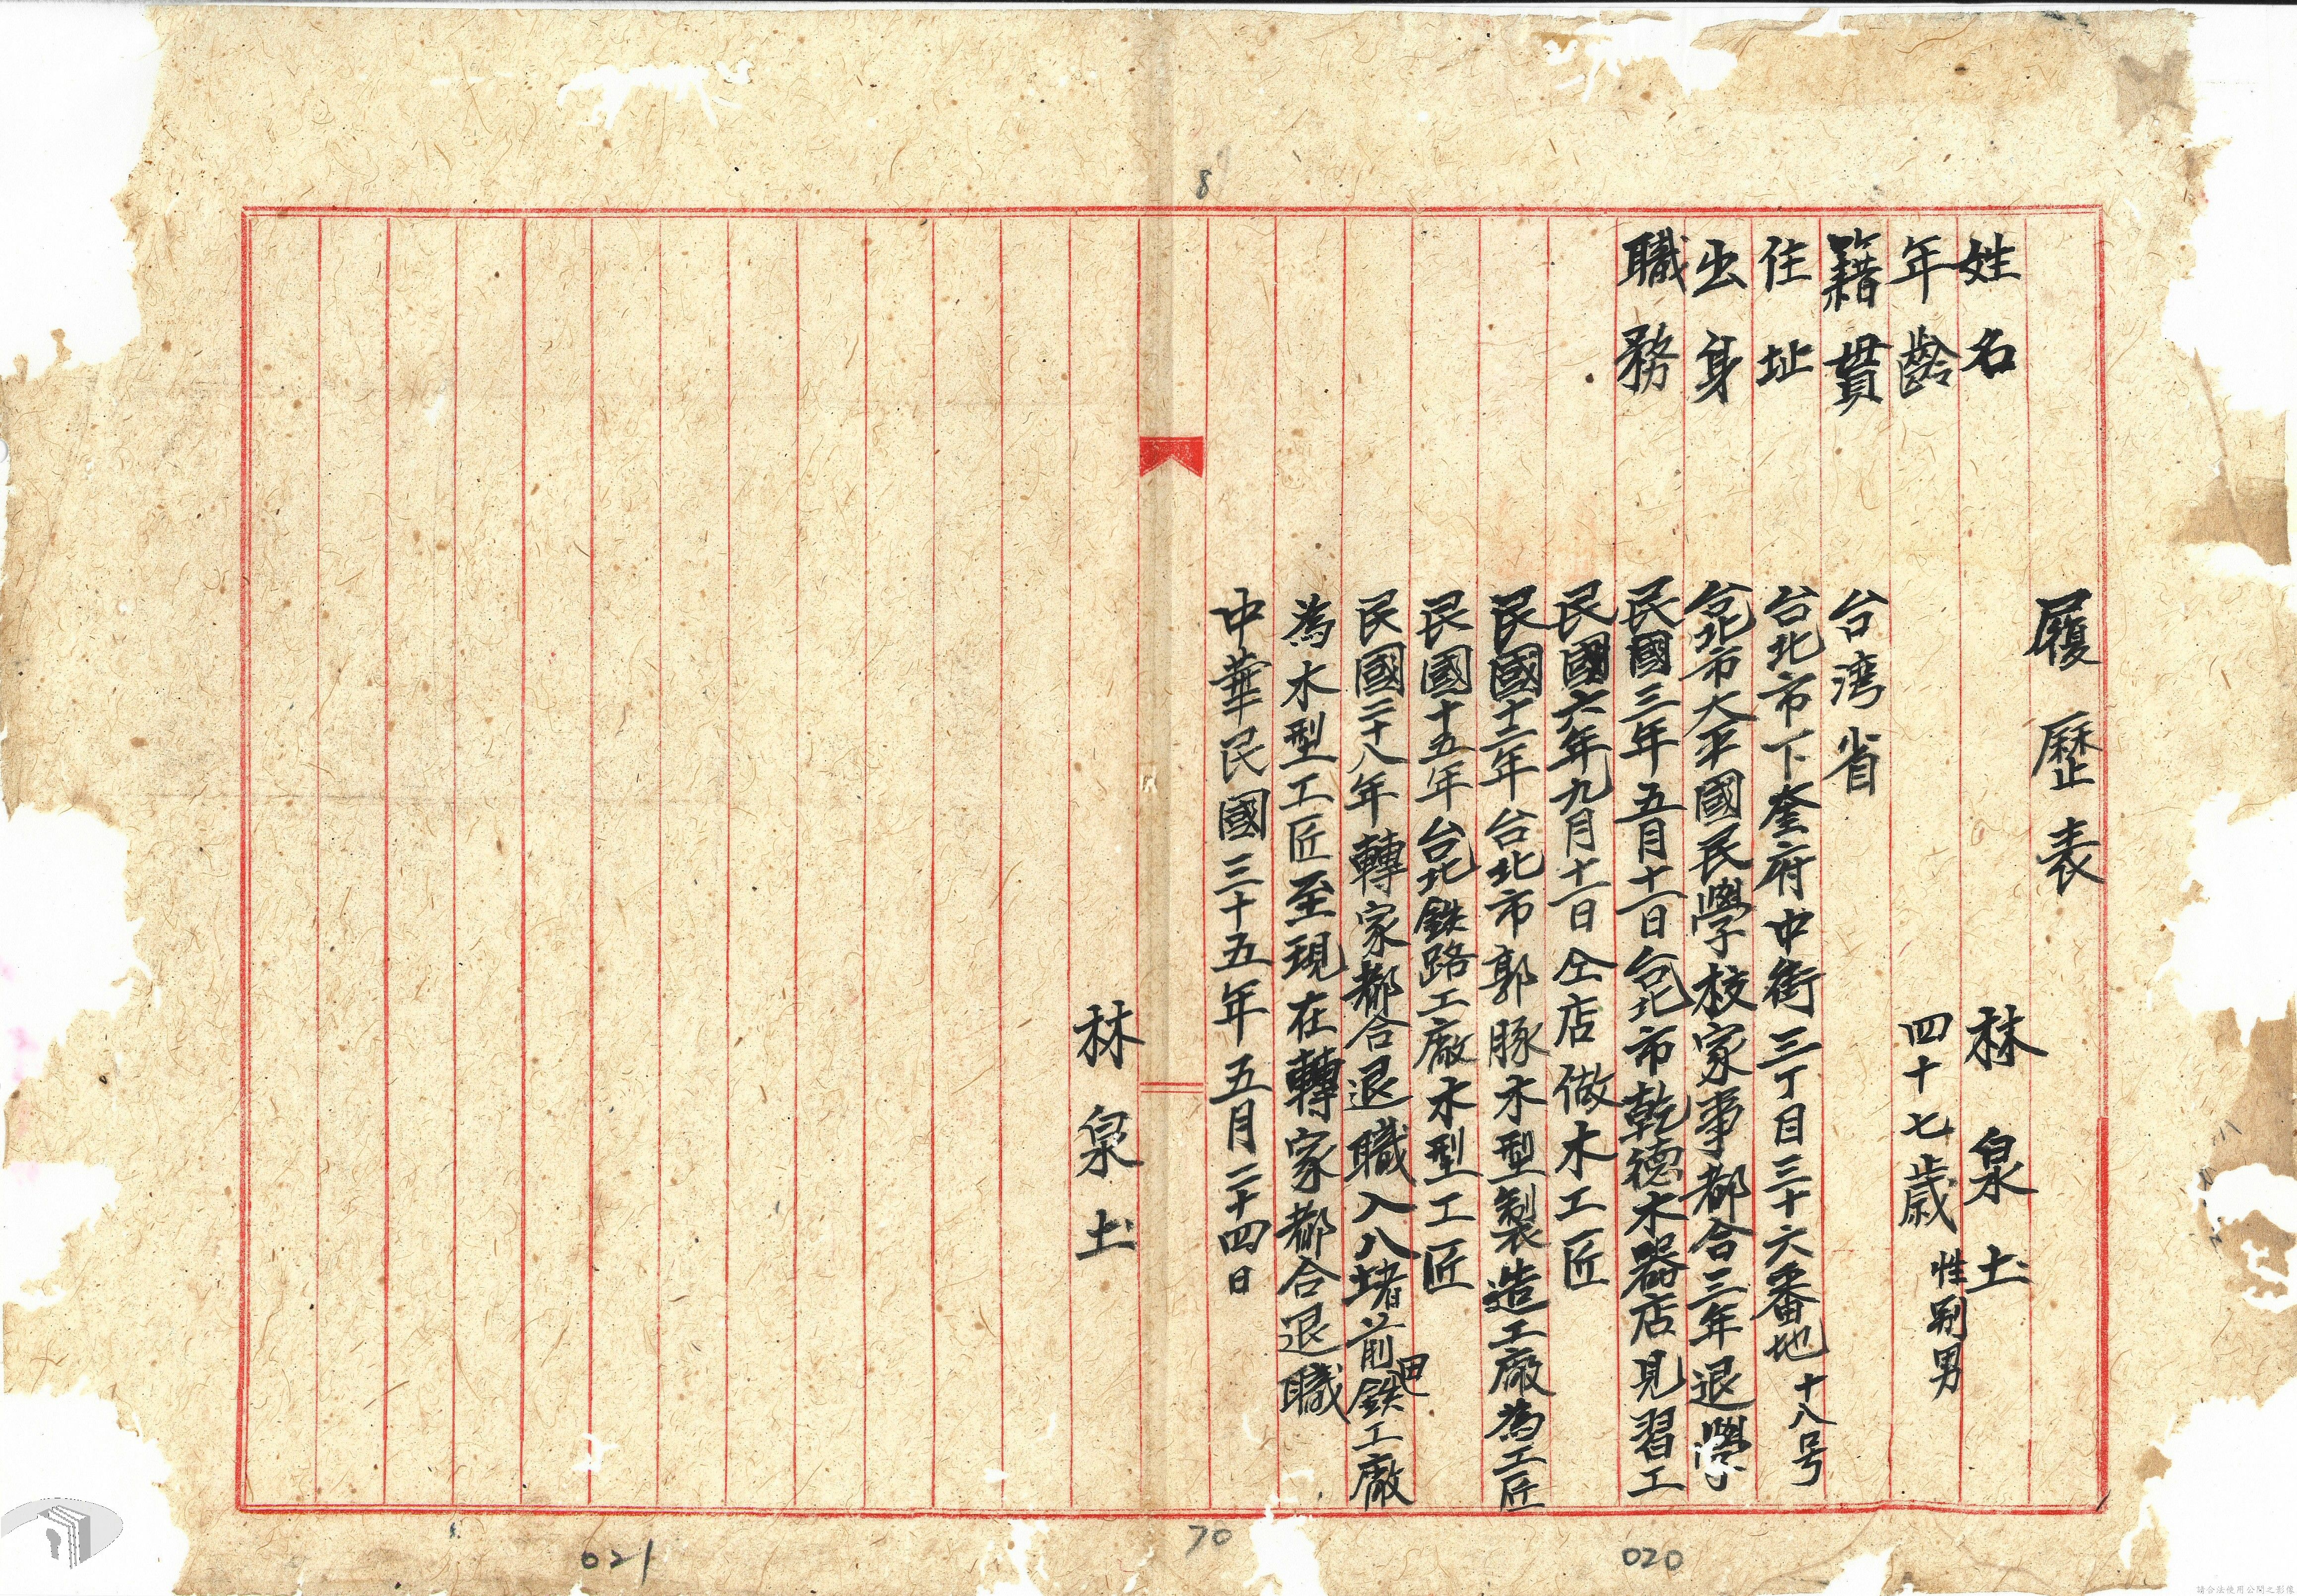 履歷表
姓名 林泉土
年齡 四十七歲 性別男
籍貫 台湾省
住址 台北市下奎府中街三丁目三十六番地十八号
出身 台北市大平國民學校家事都合三年退學
職務 民國三年五月十一日台北市乾德木器店見習工
民國六年九月十一日仝店做木工匠
民國十二年台北市郭豚木型製造工廠為工匠
民國十五年台北鉄路工廠木型工匠
民國二十八年轉家都合退職入八堵前田鉄工廠
為木型工匠至現在轉家都合退職
中華民國三十五年五月二十四日
林泉土
8
70
020
021
請合法使用公開之影像